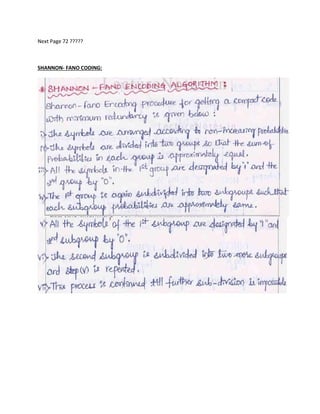 Next Page 72 ?????
SHANNON- FANO CODING:
* SHANNON - FANO ENCODING ALGORITHM :
Shannon-Fano Encoding procedure for getting a compact code
with minimum redundancy is given below :
i) The symbols are arranged according to non-increasing Probabilities
ii) The symbols are divided into two groups so that the sum of
Probabilities in each group is approximately equal.
iii) All the symbols in the 1st group are designated by "1" and the
2nd group by "0".
iv) The 1st group is again subdivided into two subgroups such that
each subgroup probabilities are approximately same.
v) All the symbols of the 1st subgroup are designated by "1" and
2nd subgroup by "0".
vi) The second subgroup is subdivided into two more subgroups
and step (v) is repeated.
vii) This process is continued till further sub-division is impossible